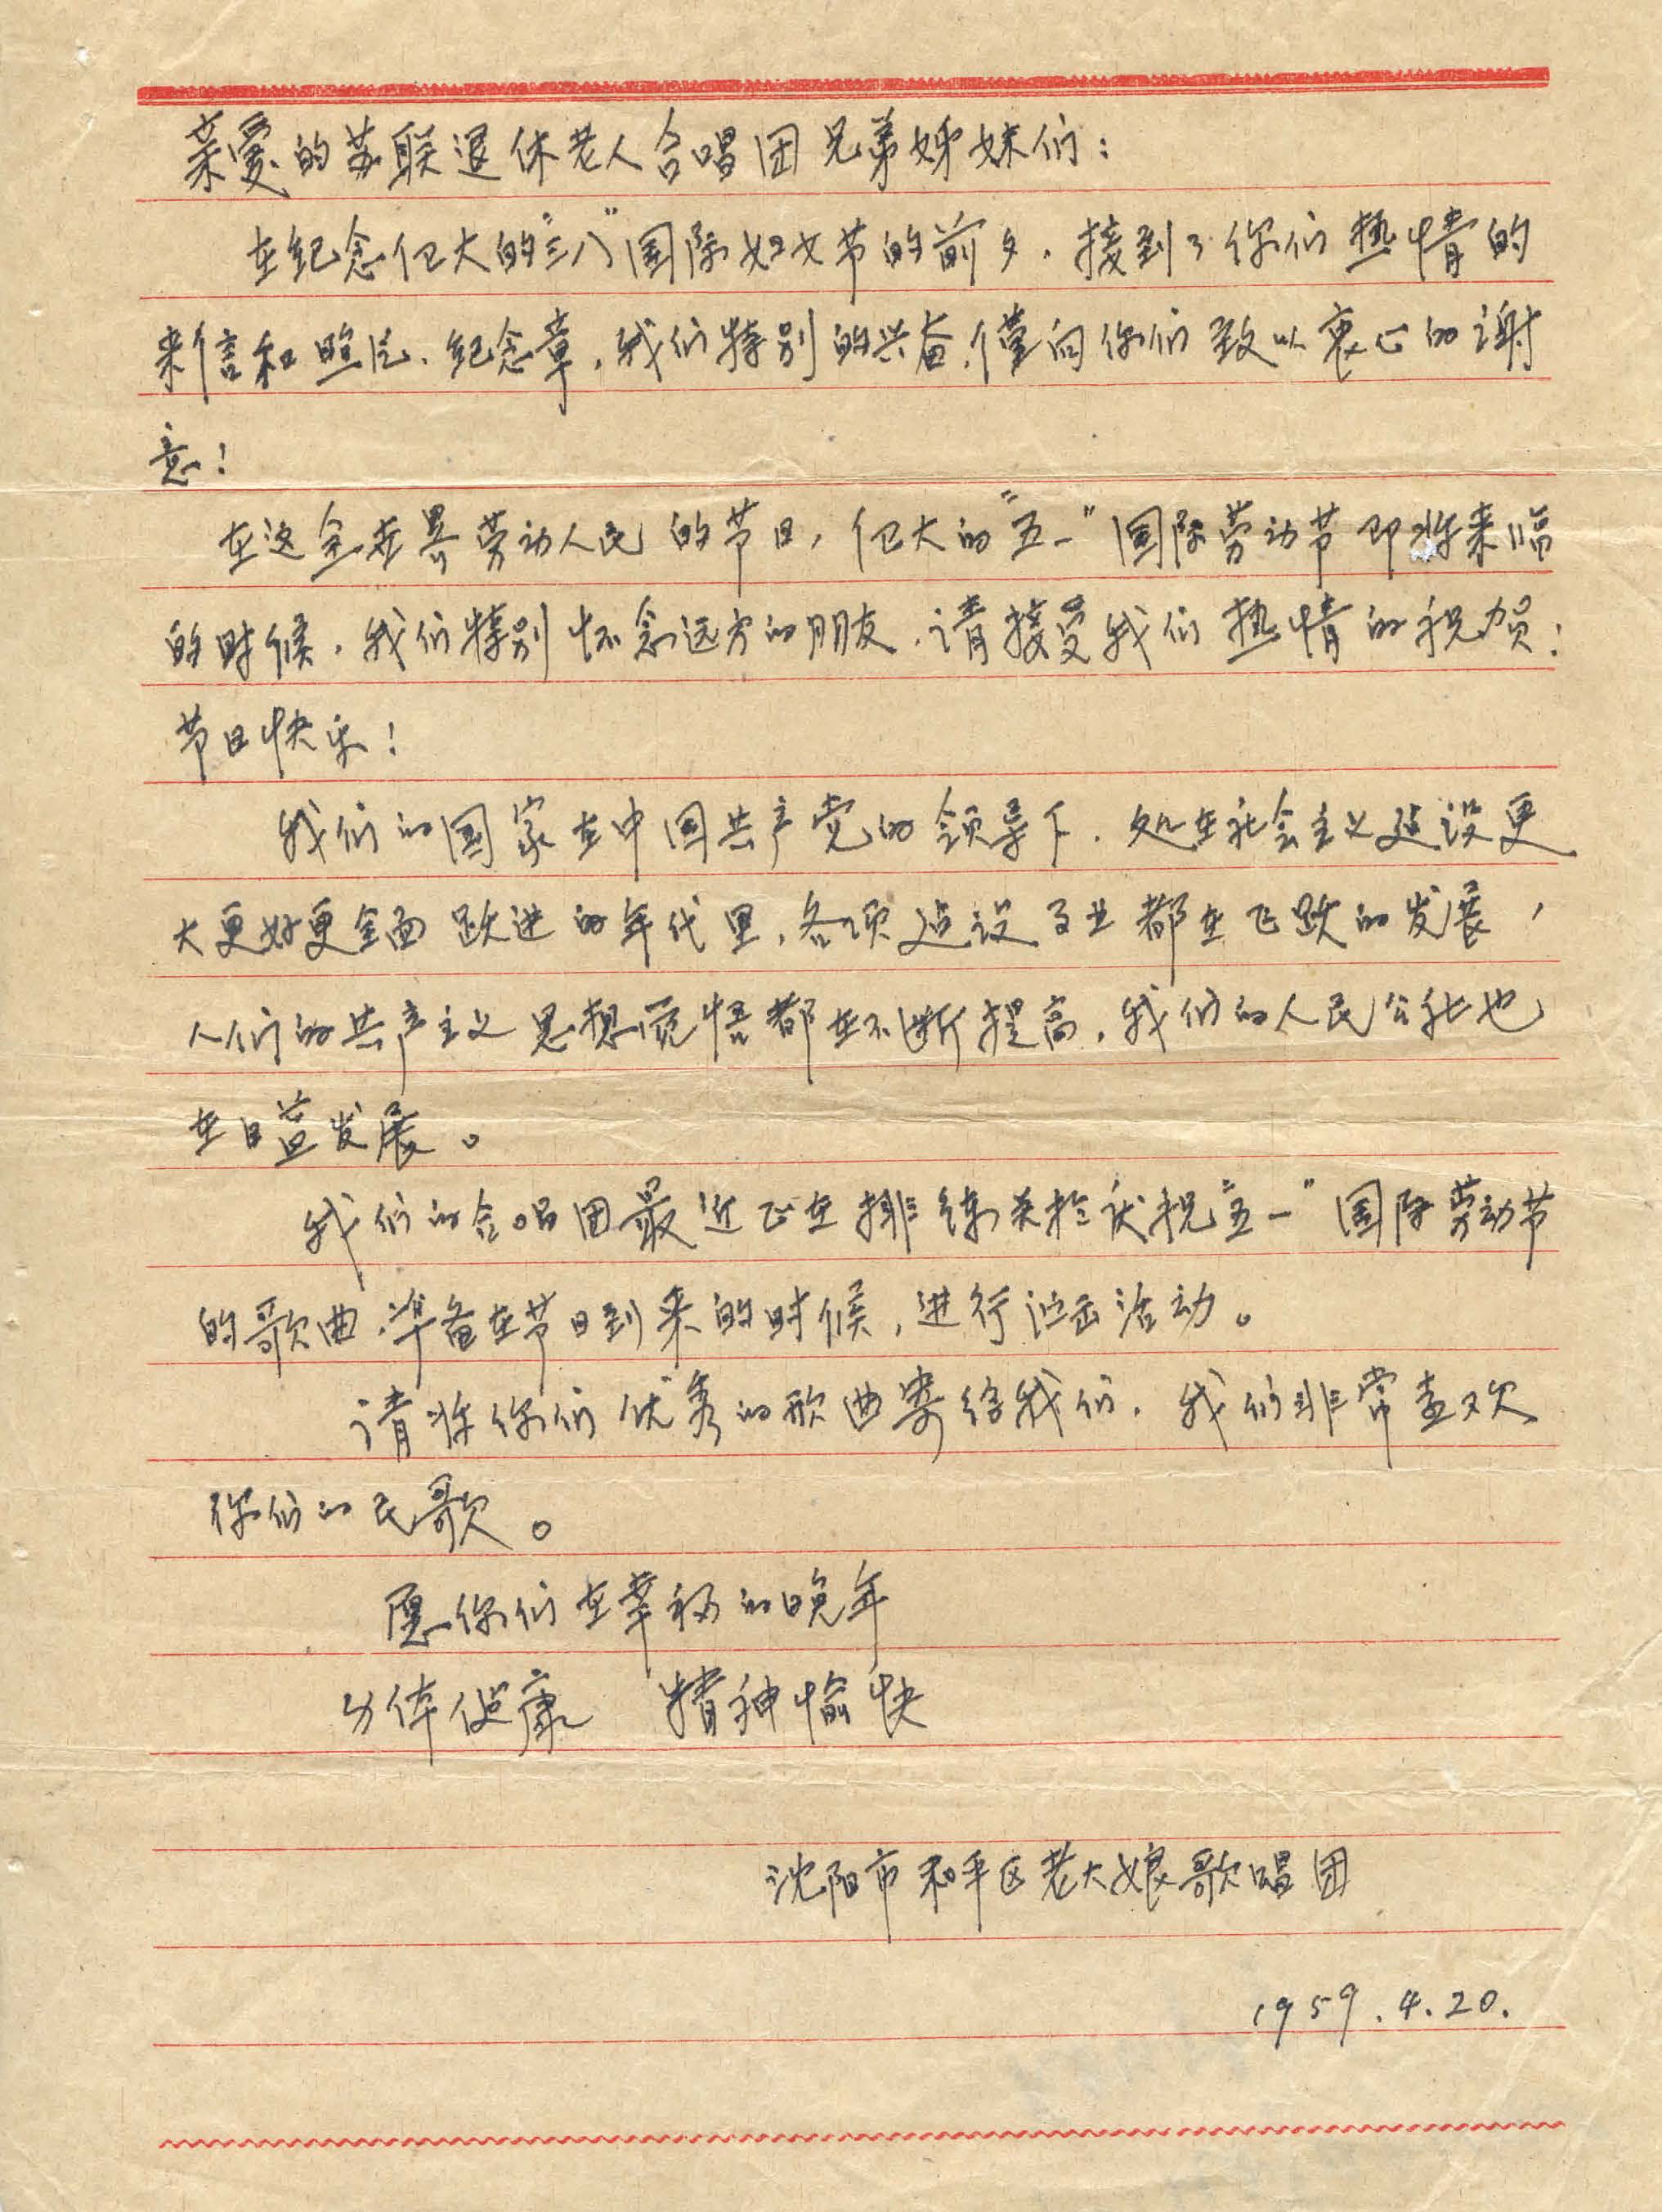 亲爱的苏联退休老人合唱团兄弟姊妹们：
在纪念伟大的“三八”国际妇女节的前夕，接到了你们热情的
来信和照片、纪念章，我们特别的兴奋，仅向你们致以衷心的谢
意！
在这全世界劳动人民的节日，伟大的“五一”国际劳动节即将来临
的时候，我们特别怀念远方的朋友，请接受我们热情的祝贺：
节日快乐！
我们的国家在中国共产党的领导下，处在社会主义建设更
大更好更全面跃进的年代里，各项建设事业都在飞跃的发展，
人们的共产主义思想觉悟都在不断提高，我们的人民公社也
在日益发展。
我们的合唱团最近正在排练关于庆祝“五一”国际劳动节
的歌曲，准备在节日到来的时候，进行演出活动。
请将你们优秀的歌曲寄给我们，我们非常喜欢
你们的民歌。
愿你们在幸福的晚年
身体健康 精神愉快
沈阳市和平区老大娘歌唱团
1959.4.20.